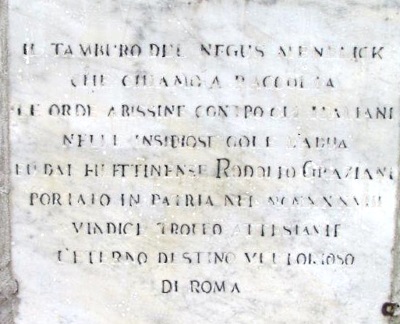 IL TAMBURO DEL NEGUS MENELICK
CHE CHIAMÒ A RACCOLTA
LE ORDE ABISSINE CONTRO GLI ITALIANI
NELLE INSIDIOSE GOLE D'ADUA
FU DAL RODOLFO GRAZIANI
PORTATO IN PATRIA NEL
VINDICE TROFEO ATTESTANTE
L'ETERNO DESTINO VITTORIOSO
DI ROMA